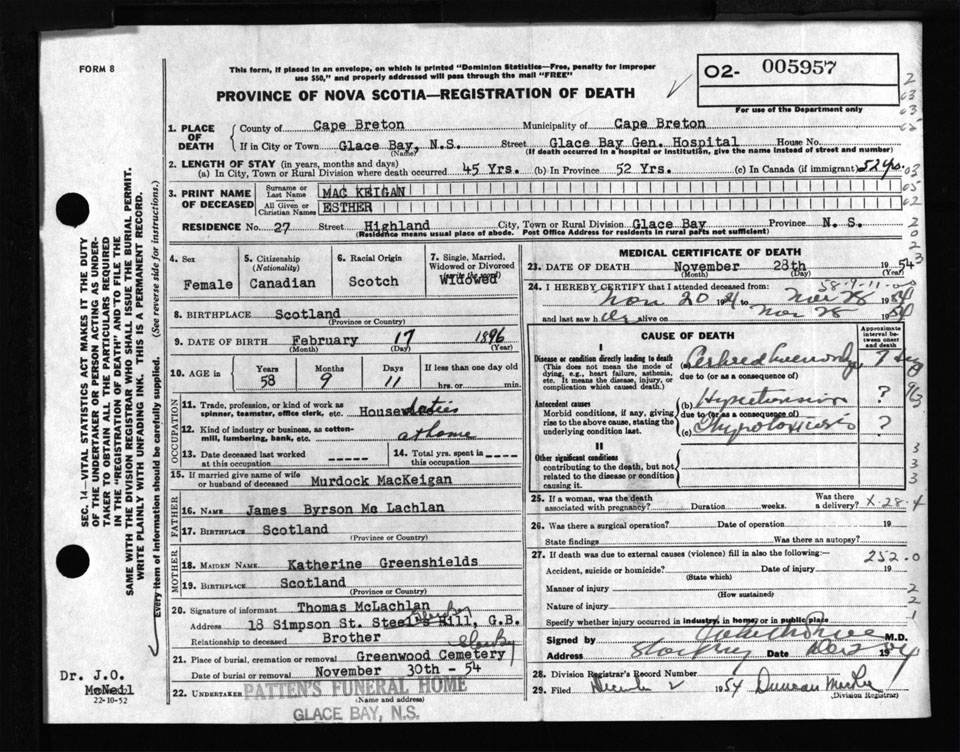 FORM 8
This form, if placed in an envelope, on which is printed "Dominion Statistics—Free, penalty for improper
use $50," and properly addressed will pass through the mail "FREE"
PROVINCE OF NOVA SCOTIA—REGISTRATION OF DEATH
O2- 005957
For use of the Department only
SEC. 14—VITAL STATISTICS ACT MAKES IT THE DUTY
OF THE UNDERTAKER OR PERSON ACTING AS UNDER-
TAKER TO OBTAIN ALL THE PARTICULARS REQUIRED
IN THE "REGISTRATION OF DEATH" AND TO FILE THE
SAME WITH THE DIVISION REGISTRAR WHO SHALL ISSUE THE BURIAL PERMIT.
WRITE PLAINLY WITH UNFADING INK. THIS IS A PERMANENT RECORD.
Every item of information should be carefully supplied. (See reverse side for instructions.)
1. PLACE OF DEATH
County of Cape Breton Municipality of Cape Breton
If in City or Town Glace Bay, N.S. Street Glace Bay Gen. Hospital House No.
(Name) (If death occurred in a hospital or institution, give the name instead of street and number)
2. LENGTH OF STAY (in years, months and days)
(a) In City, Town or Rural Division where death occurred 45 Yrs. (b) In Province 52 Yrs. (c) In Canada (if immigrant) 52 yrs.
3. PRINT NAME OF DECEASED
Surname or Last Name MAC KEIGAN
All Given or Christian Names ESTHER
RESIDENCE No. 27 Street Highland City, Town or Rural Division Glace Bay Province N. S.
(Residence means usual place of abode. Post Office Address for residents in rural parts not sufficient)
4. Sex
Female
5. Citizenship
(Nationality)
Canadian
6. Racial Origin
Scotch
7. Single, Married, Widowed or Divorced
Widowed
8. BIRTHPLACE Scotland
(Province or Country)
9. DATE OF BIRTH February 17 1896
(Month) (Day) (Year)
10. AGE in
Years Months Days If less than one day old
58 9 11 hrs. or min.
OCCUPATION
11. Trade, profession, or kind of work as
spinner, teamster, office clerk, etc. House duties
12. Kind of industry or business, as cotton-
mill, lumbering, bank, etc. at home
13. Date deceased last worked
at this occupation -----
14. Total yrs. spent in
this occupation -----
15. If married give name of wife
or husband of deceased Murdock MacKeigan
FATHER
16. NAME James Byrson Mc Lachlan
17. BIRTHPLACE Scotland
(Province or Country)
MOTHER
18. MAIDEN NAME Katherine Greenshields
19. BIRTHPLACE Scotland
(Province or Country)
20. Signature of informant Thomas McLachlan
Address 18 Simpson St. Steel's Hill, G.B.
Glace Bay
Relationship to deceased Brother
21. Place of burial, cremation or removal Greenwood Cemetery Glace Bay
Date of burial or removal November 30th - 54
22. UNDERTAKER PATTEN'S FUNERAL HOME
(Name and address)
GLACE BAY, N.S.
Dr. J.O.
McNeil
22-10-52
MEDICAL CERTIFICATE OF DEATH
23. DATE OF DEATH November 28th 1954
(Month) (Day) (Year)
24. I HEREBY CERTIFY that I attended deceased from:
58-9-11-00
Nov 20 1954 to Nov 28 1954
and last saw her alive on Nov 28 1954
CAUSE OF DEATH
Approximate interval between onset and death
I
Disease or condition directly leading to death
(This does not mean the mode of
dying, e.g., heart failure, asthenia,
etc. It means the disease, injury, or
complication which caused death.)
(a) Cerebral 7
due to (or as a consequence of)
Antecedent causes
Morbid conditions, if any, giving
rise to the above cause, stating the
underlying condition last.
(b) Hypertension ?
due to (or as a consequence of)
(c) Thyrotoxicosis ?
II
Other significant conditions
contributing to the death, but not
related to the disease or condition
causing it.
25. If a woman, was the death
associated with pregnancy? Duration weeks. Was there
a delivery? X-28-4
26. Was there a surgical operation? Date of operation 19
State findings Was there an autopsy?
27. If death was due to external causes (violence) fill in also the following: 252.0
Accident, suicide or homicide? Date of injury 19
(State which)
Manner of injury
(How sustained)
Nature of injury
Specify whether injury occurred in industry, in home, or in public place
Signed by M.D.
Address Glace Bay Date Dec 2 1954
28. Division Registrar's Record Number
29. Filed December 2 1954 Duncan
(Division Registrar)